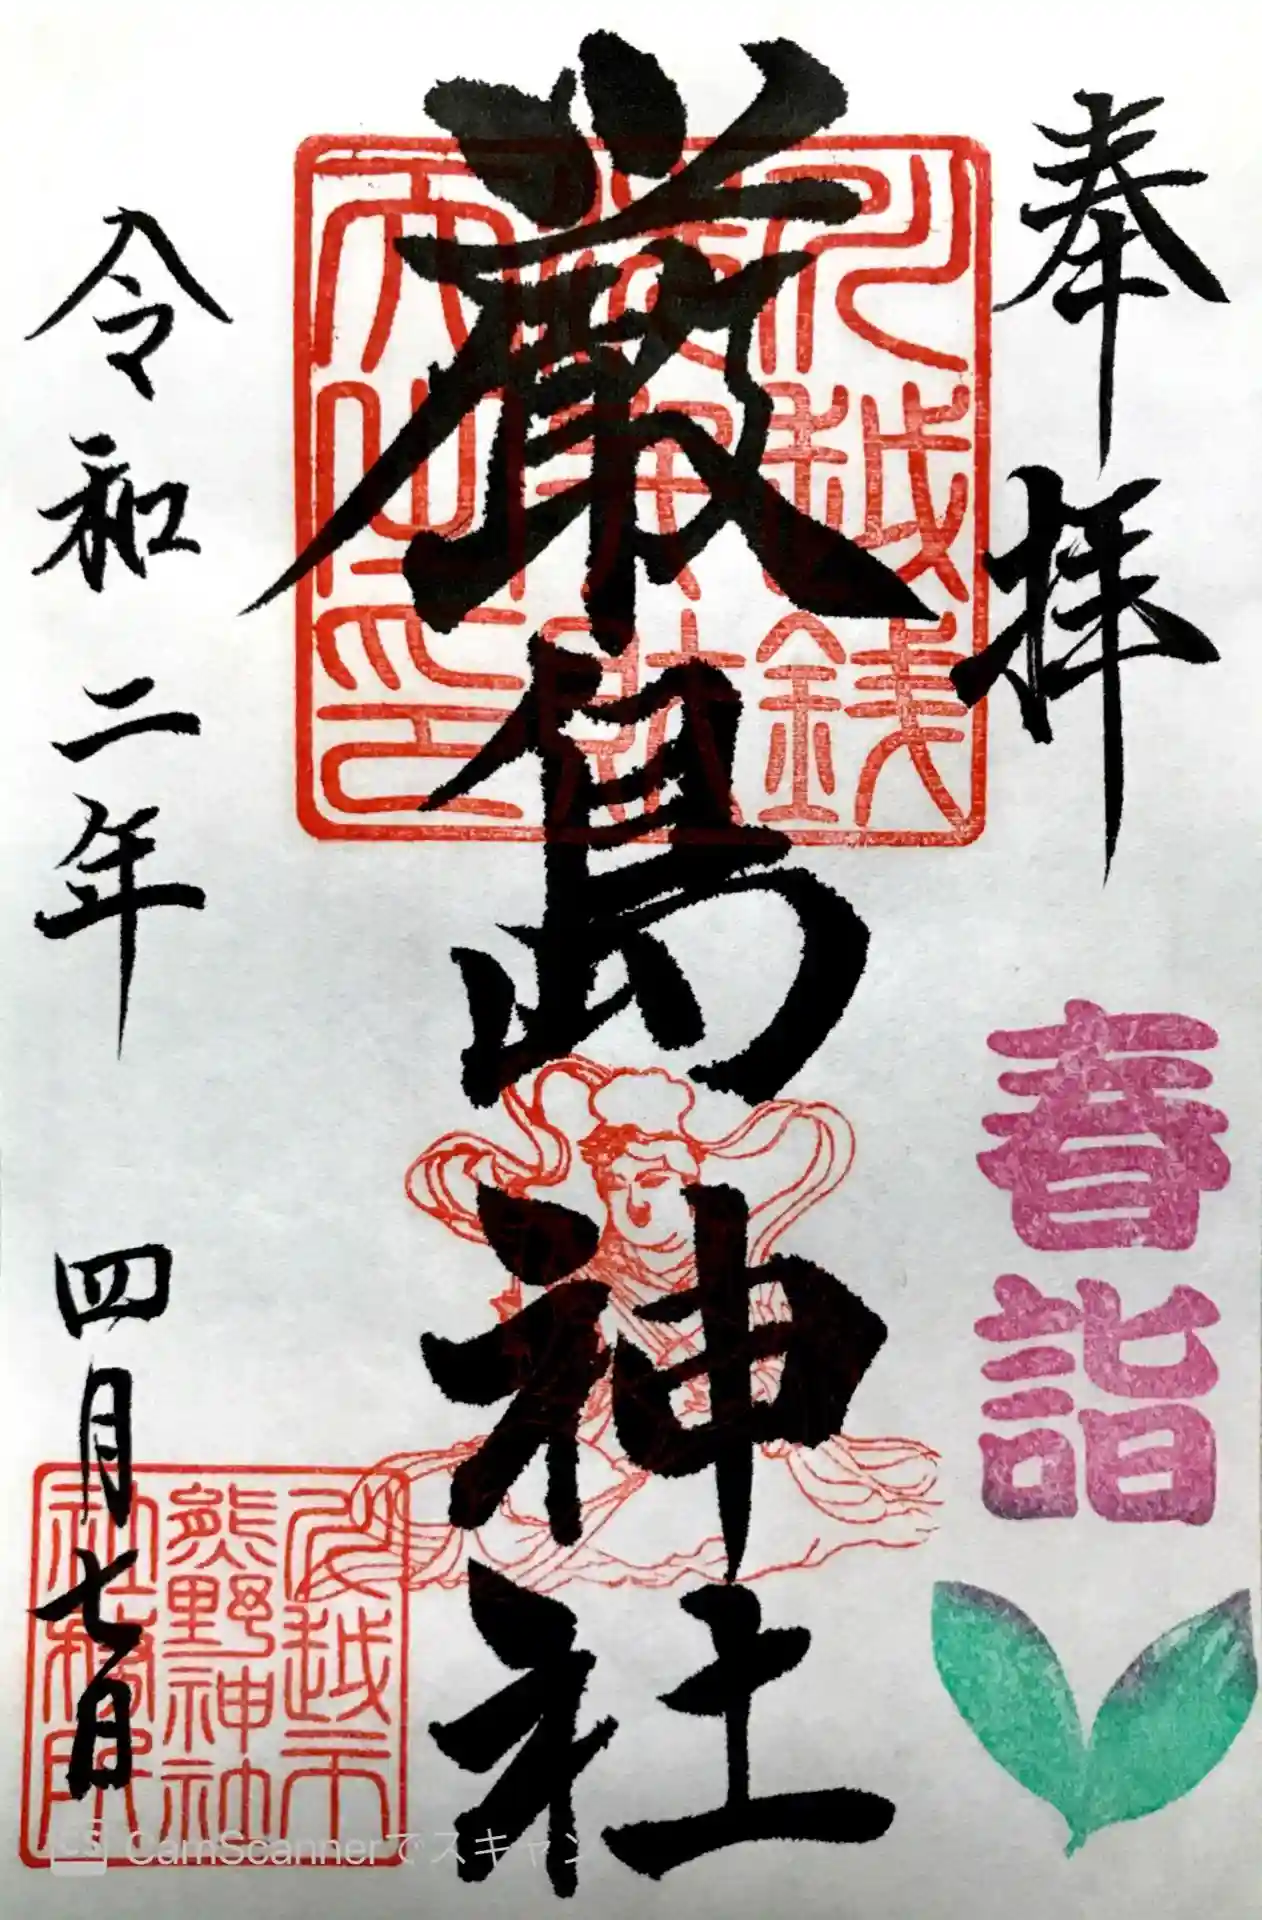 奉拝
春詣
厳島神社
川越銭洗弁財天之印
令和二年 四月七日
川越市熊野神社社務所
CamScannerでスキャン